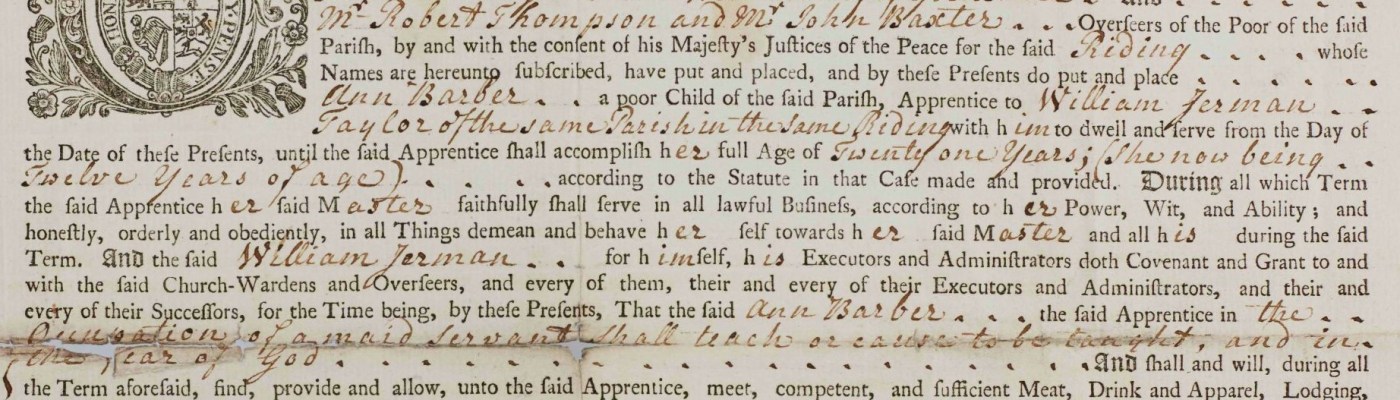 HON Y·PENSE
And
Mr Robert Thompson and Mr John Baxter . . . Overſeers of the Poor of the ſaid
Pariſh, by and with the conſent of his Majeſty's Juſtices of the Peace for the ſaid Riding . . . . whoſe
Names are hereunto ſubſcribed, have put and placed, and by theſe Preſents do put and place . . . . . .
Ann Barber . . a poor Child of the ſaid Pariſh, Apprentice to William Jerman . .
Taylor of the same Parish in the same Riding with h im to dwell and ſerve from the Day of
the Date of theſe Preſents, until the ſaid Apprentice ſhall accompliſh h er full Age of Twenty one Years; (She now being . .
Twelve Years of age) . . . . . according to the Statute in that Caſe made and provided. During all which Term
the ſaid Apprentice h er ſaid M aster faithfully ſhall ſerve in all lawful Buſineſs, according to h er Power, Wit, and Ability; and
honeſtly, orderly and obediently, in all Things demean and behave h er ſelf towards h er ſaid M aster and all h is during the ſaid
Term. And the ſaid William Jerman . . for h imſelf, h is Executors and Adminiſtrators doth Covenant and Grant to and
with the ſaid Church-Wardens and Overſeers, and every of them, their and every of their Executors and Adminiſtrators, and their and
every of their Succeſſors, for the Time being, by theſe Preſents, That the ſaid Ann Barber . . . the ſaid Apprentice in the . .
Occupation of a maid servant shall teach or cause to be taught, and in .
the fear of God . . . . . . . . . . . . . . . And ſhall and will, during all
the Term aforeſaid, find, provide and allow, unto the ſaid Apprentice, meet, competent, and ſufficient Meat, Drink and Apparel, Lodging,